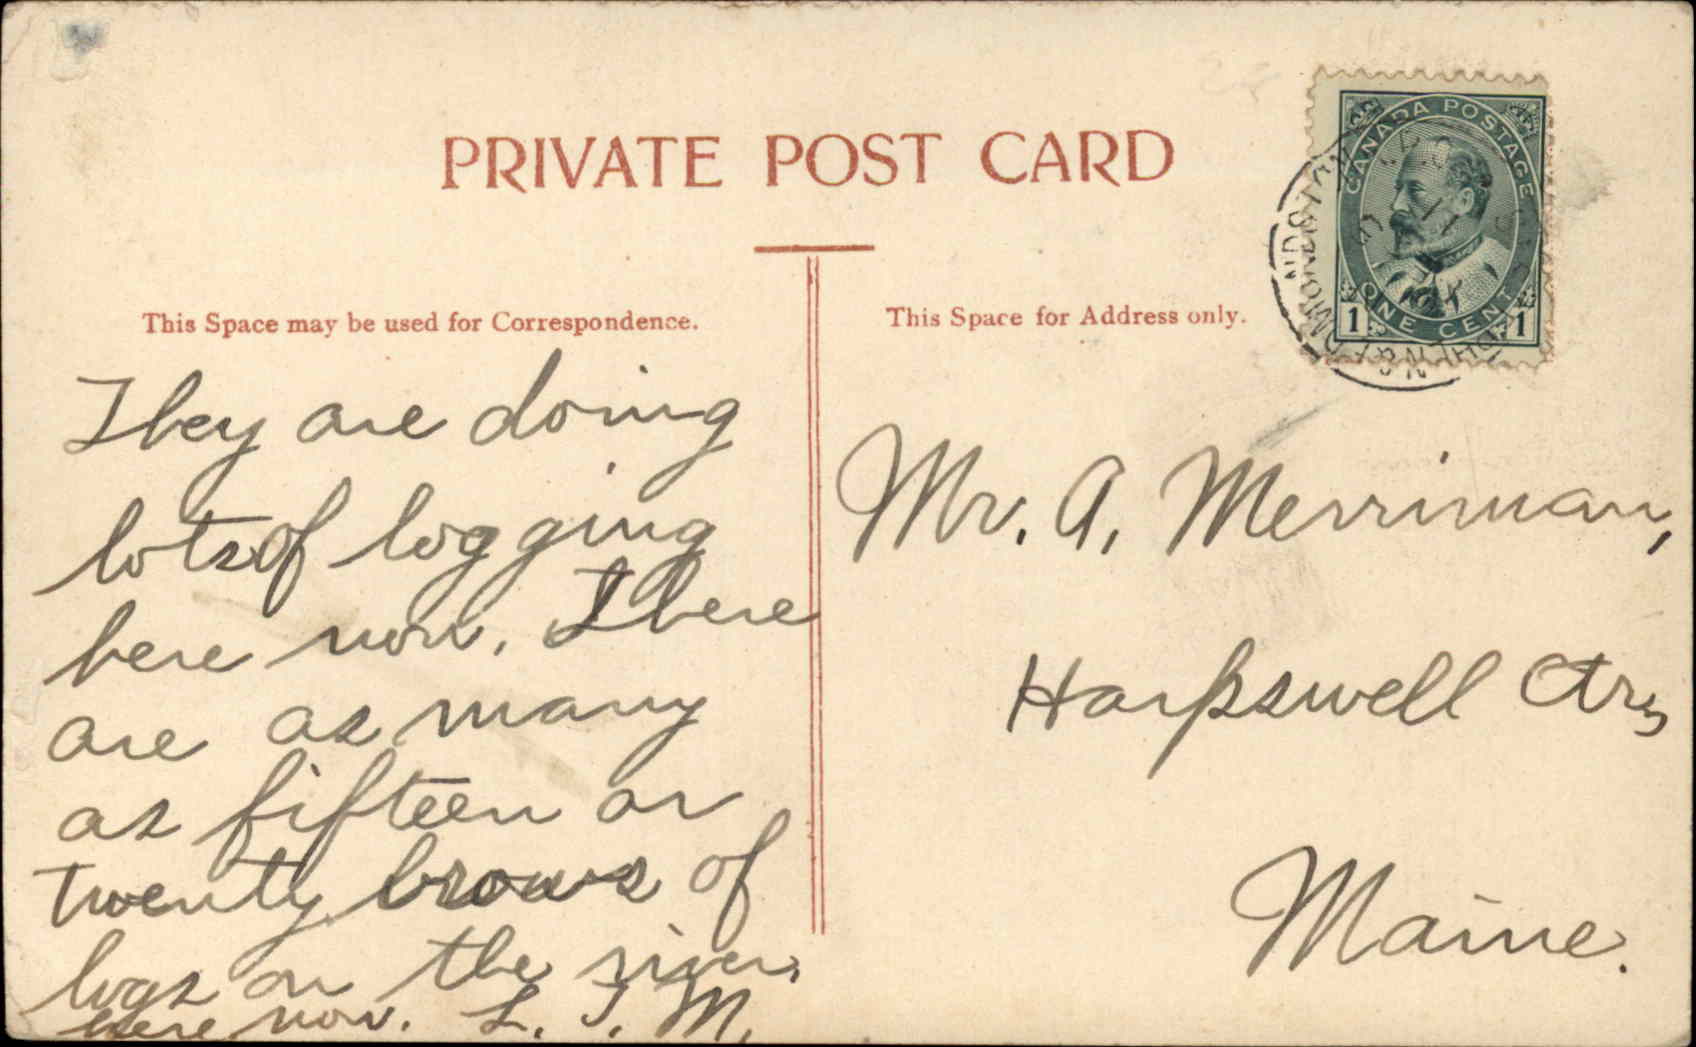 PRIVATE POST CARD
This Space may be used for Correspondence.
This Space for Address only.
CANADA POSTAGE
ONE CENT
1 1
They are doing
lots of logging
here now. There
are as many
as fifteen or
twenty brows of
logs on the river
here now. L. T. M.
Mr. A. Merriman,
Harpswell Ctr,
Maine.